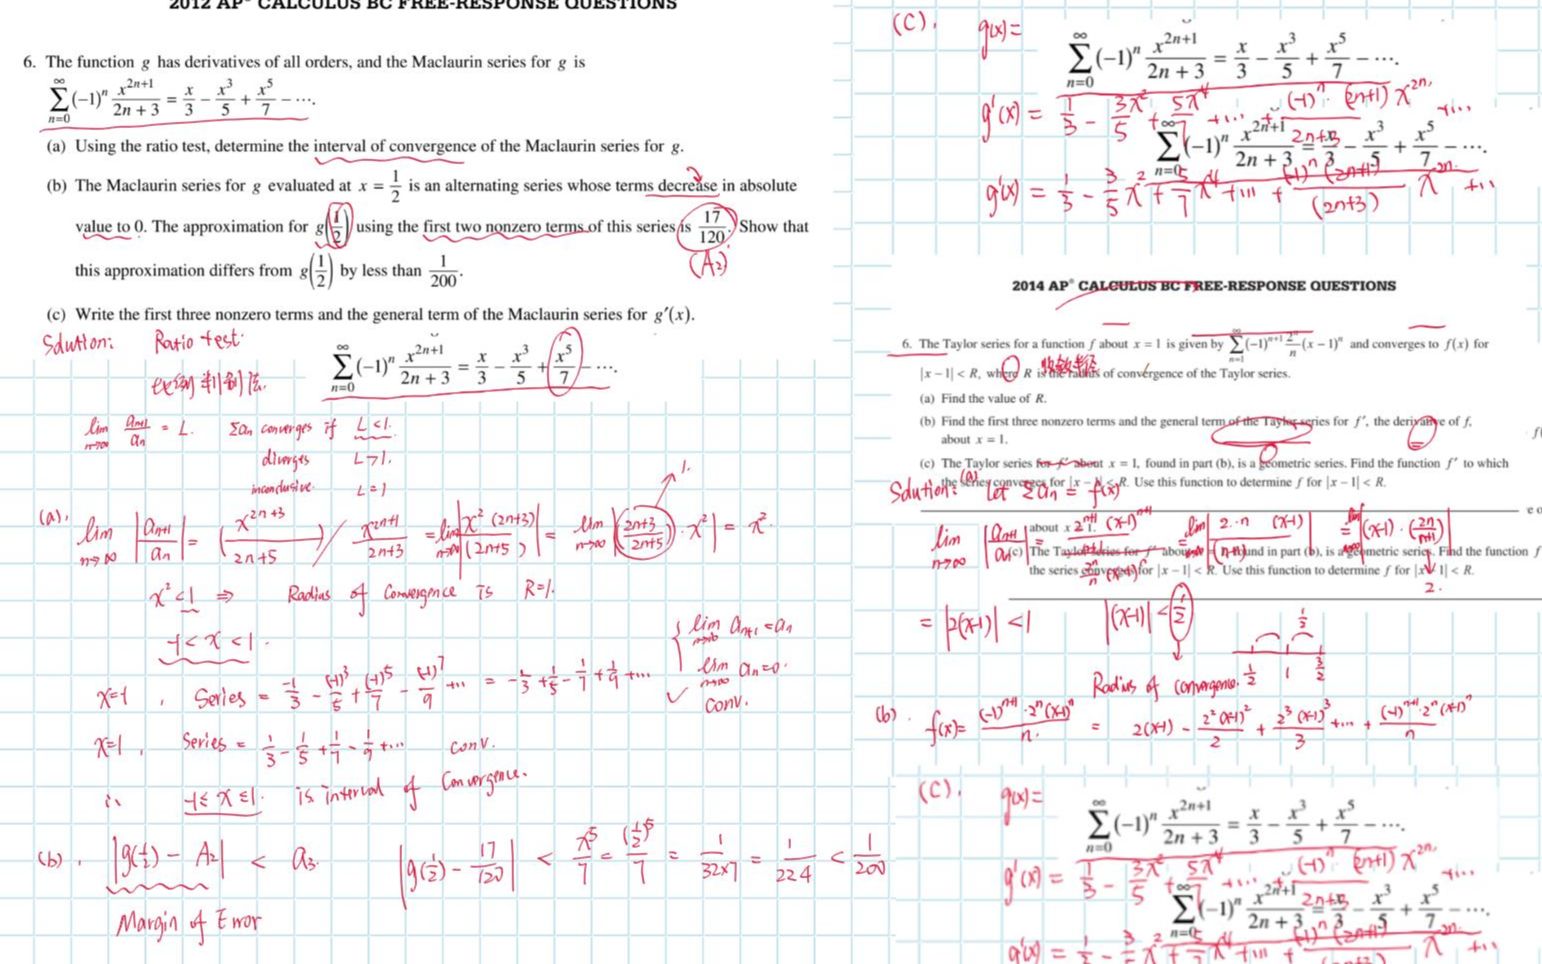 2012 AP® CALCULUS BC FREE-RESPONSE QUESTIONS
6. The function g has derivatives of all orders, and the Maclaurin series for g is
∑_{n=0}^{∞} (−1)^n x^{2n+1}/(2n + 3) = x/3 − x^3/5 + x^5/7 − ⋯.
(a) Using the ratio test, determine the interval of convergence of the Maclaurin series for g.
(b) The Maclaurin series for g evaluated at x = 1/2 is an alternating series whose terms decrease in absolute
value to 0. The approximation for g(1/2) using the first two nonzero terms of this series is 17/120. Show that
(A₂)
this approximation differs from g(1/2) by less than 1/200.
(c) Write the first three nonzero terms and the general term of the Maclaurin series for g′(x).
Solution: Ratio test.
比例判别法.
∑_{n=0}^{∞} (−1)^n x^{2n+1}/(2n + 3) = x/3 − x^3/5 + x^5/7 − ⋯.
lim_{n→∞} a_{n+1}/a_n = L. Σa_n converges if L<1.
diverges L>1.
inconclusive. L=1
(a). lim_{n→∞} |a_{n+1}/a_n| = (x^{2n+3}/(2n+5)) / (x^{2n+1}/(2n+3)) = lim_{n→∞} |x^2 (2n+3)/(2n+5)| = lim_{n→∞} |((2n+3)/(2n+5)) · x^2| = x^2
1.
x^2<1 ⇒ Radius of Convergence is R=1.
-1<x<1.
x=-1, Series = -1/3 − (-1)^3/5 + (-1)^5/7 − (-1)^7/9 +... = -1/3 + 1/5 − 1/7 + 1/9 +...
lim_{n→∞} a_{n+1} = a_n
lim_{n→∞} a_n = 0.
✓ conv.
x=1, Series = 1/3 − 1/5 + 1/7 − 1/9 +... conv.
∴ -1≤x≤1. is interval of Convergence.
(b). |g(1/2) − A₂| < a₃. |g(1/2) − 17/120| < x^5/7 = (1/2)^5/7 = 1/(32×7) = 1/224 < 1/200
Margin of Error
(C). g(x)=
∑_{n=0}^{∞} (−1)^n x^{2n+1}/(2n + 3) = x/3 − x^3/5 + x^5/7 − ⋯.
g'(x) = 1/3 − 3x^2/5 + 5x^4/7 +... + (-1)^n (2n+1) x^{2n}/(2n+3) +...
∑_{n=0}^{∞} (−1)^n x^{2n+1}/(2n + 3) = x/3 − x^3/5 + x^5/7 − ⋯.
g'(x) = 1/3 − 3/5 x^2 + 5/7 x^4 +... + (-1)^n (2n+1)/(2n+3) x^{2n} +...
2014 AP® CALCULUS BC FREE-RESPONSE QUESTIONS
6. The Taylor series for a function f about x = 1 is given by ∑_{n=1}^{∞} (−1)^{n+1} 2^n/n (x − 1)^n and converges to f(x) for
收敛半径
|x − 1| < R, where R is the radius of convergence of the Taylor series.
(a) Find the value of R.
(b) Find the first three nonzero terms and the general term of the Taylor series for f′, the derivative of f,
about x = 1.
(c) The Taylor series for f′ about x = 1, found in part (b), is a geometric series. Find the function f′ to which
the series converges for |x − 1| < R. Use this function to determine f for |x − 1| < R.
Solution: (a) let Σa_n = f(x)
about x = 1.
(c) The Taylor series for f′ about found in part (b), is a geometric series. Find the function f
the series converges for |x − 1| < R. Use this function to determine f for |x − 1| < R.
lim_{n→∞} |a_{n+1}/a_n| = 2^{n+1} (x-1)^{n+1} = lim |2·n (x-1)/(n+1)| = lim |(x-1)·(2n/(n+1))|
2.
= |2(x-1)| <1 |(x-1)| < 1/2
Radius of convergence.
1/2
1/2 1 3/2
(b). f(x) = (-1)^{n+1}·2^n (x-1)^n/n. = 2(x-1) − 2^2 (x-1)^2/2 + 2^3 (x-1)^3/3 +... + (-1)^{n+1}·2^n (x-1)^n/n
(C). g(x)=
∑_{n=0}^{∞} (−1)^n x^{2n+1}/(2n + 3) = x/3 − x^3/5 + x^5/7 − ⋯.
g'(x) = 1/3 − 3x^2/5 + 5x^4/7 +... + (-1)^n (2n+1) x^{2n}/(2n+3) +...
∑_{n=0}^{∞} (−1)^n x^{2n+1}/(2n + 3) = x/3 − x^3/5 + x^5/7 − ⋯.